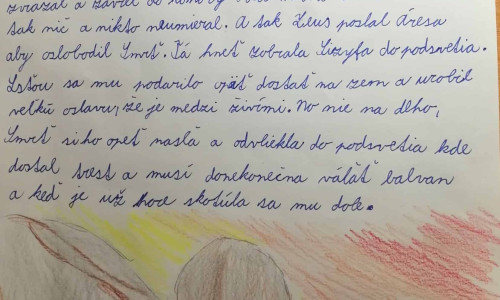 zviazal a zaval do
tak nič a nikto neumieral. A tak Zeus poslal Áresa
aby oslobodil Smrť. Tá hneť zobrala Sizyfa do podsvetia.
Lsťou sa mu podarilo opäť dostať na zem a urobil
veľkú oslavu, že je medzi živími. No nie na dlho,
Smrť si ho opeť našla a odvliekla do podsvetia kde
dostal trest a musí donekonečna váľať balvan
a keď je už hore skotúla sa mu dole.